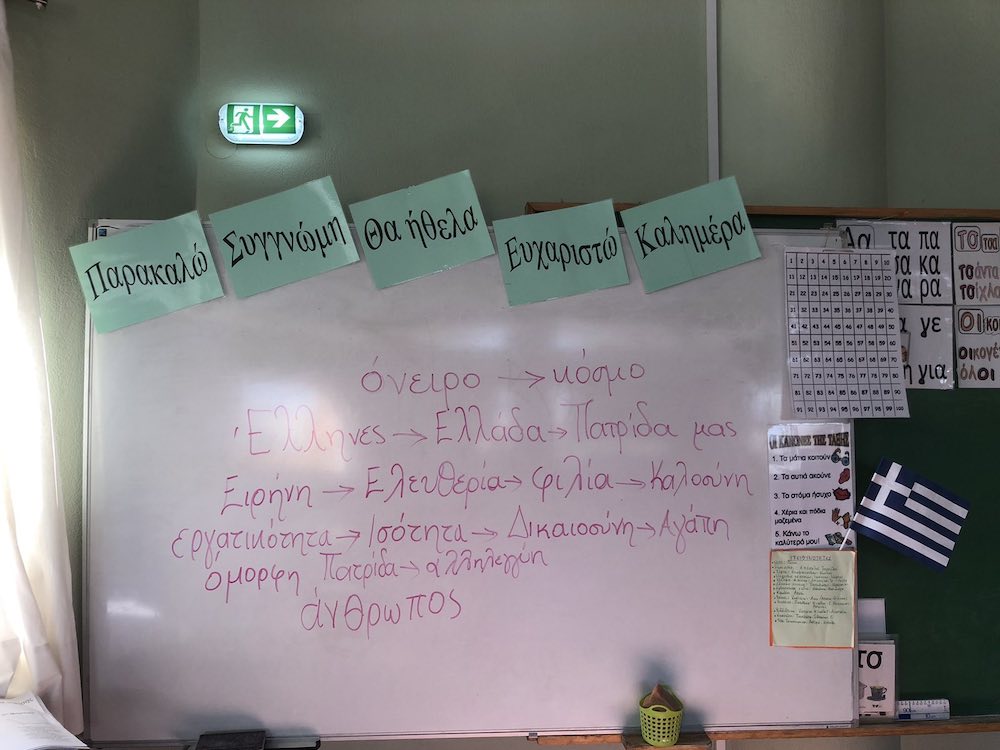 Παρακαλώ
Συγγνώμη
Θα ήθελα
Ευχαριστώ
Καλημέρα
όνειρο → κόσμο
Έλληνες → Ελλάδα → Πατρίδα μας
Ειρήνη → Ελευθερία → φιλία → Καλοσύνη
εργατικότητα → Ισότητα → Δικαιοσύνη → Αγάπη
όμορφη Πατρίδα → αλληλεγγύη
άνθρωπος
τα πα
σα κα
να ρα
γε
για
ΤΣ τσ
τσάντα
ΟΙ
όλοι
1 2 3 4 5 6 7 8 9 10
11 12 13 14 15 16 17 18 19 20
21 22 23 24 25 26 27 28 29 30
31 32 33 34 35 36 37 38 39 40
41 42 43 44 45 46 47 48 49 50
51 52 53 54 55 56 57 58 59 60
61 62 63 64 65 66 67 68 69 70
71 72 73 74 75 76 77 78 79 80
81 82 83 84 85 86 87 88 89 90
91 92 93 94 95 96 97 98 99 100
ΟΙ ΚΑΝΟΝΕΣ ΤΗΣ ΤΑΞΗΣ
1. Τα μάτια κοιτούν
2. Τα αυτιά ακούνε
3. Το στόμα ήσυχο
4. Χέρια και πόδια
μαζεμένα
5. Κάνω το
καλύτερό μου!
τσ